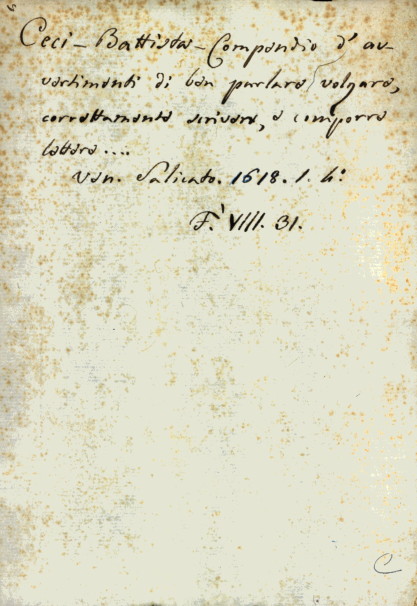 Ceci - Battista - Compendio d'av-
vertimenti di ben parlare volgare,
correttamente scrivere, e comporre
lettere....
Ven. Salicato. 1618. 1. 4°
F. VIII. 31.
C